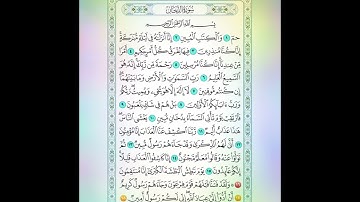 سورة الدخان
بِسْمِ اللَّهِ الرَّحْمَٰنِ الرَّحِيمِ
حم ١ وَالْكِتَابِ الْمُبِينِ ٢ إِنَّا أَنزَلْنَاهُ فِي لَيْلَةٍ مُّبَارَكَةٍ
إِنَّا كُنَّا مُنذِرِينَ ٣ فِيهَا يُفْرَقُ كُلُّ أَمْرٍ حَكِيمٍ ٤ أَمْرًا
مِّنْ عِندِنَا إِنَّا كُنَّا مُرْسِلِينَ ٥ رَحْمَةً مِّن رَّبِّكَ إِنَّهُ هُوَ
السَّمِيعُ الْعَلِيمُ ٦ رَبِّ السَّمَاوَاتِ وَالْأَرْضِ وَمَا بَيْنَهُمَا
إِن كُنتُم مُّوقِنِينَ ٧ لَا إِلَٰهَ إِلَّا هُوَ يُحْيِي وَيُمِيتُ رَبُّكُمْ
وَرَبُّ آبَائِكُمُ الْأَوَّلِينَ ٨ بَلْ هُمْ فِي شَكٍّ يَلْعَبُونَ ٩
فَارْتَقِبْ يَوْمَ تَأْتِي السَّمَاءُ بِدُخَانٍ مُّبِينٍ ١٠ يَغْشَى النَّاسَ
هَٰذَا عَذَابٌ أَلِيمٌ ١١ رَّبَّنَا اكْشِفْ عَنَّا الْعَذَابَ إِنَّا مُؤْمِنُونَ
١٢ أَنَّىٰ لَهُمُ الذِّكْرَىٰ وَقَدْ جَاءَهُمْ رَسُولٌ مُّبِينٌ ١٣ ثُمَّ
تَوَلَّوْا عَنْهُ وَقَالُوا مُعَلَّمٌ مَّجْنُونٌ ١٤ إِنَّا كَاشِفُو الْعَذَابِ قَلِيلًا
إِنَّكُمْ عَائِدُونَ ١٥ يَوْمَ نَبْطِشُ الْبَطْشَةَ الْكُبْرَىٰ إِنَّا مُنتَقِمُونَ
١٦ وَلَقَدْ فَتَنَّا قَبْلَهُمْ قَوْمَ فِرْعَوْنَ وَجَاءَهُمْ رَسُولٌ كَرِيمٌ
١٧ أَنْ أَدُّوا إِلَيَّ عِبَادَ اللَّهِ إِنِّي لَكُمْ رَسُولٌ أَمِينٌ ١٨